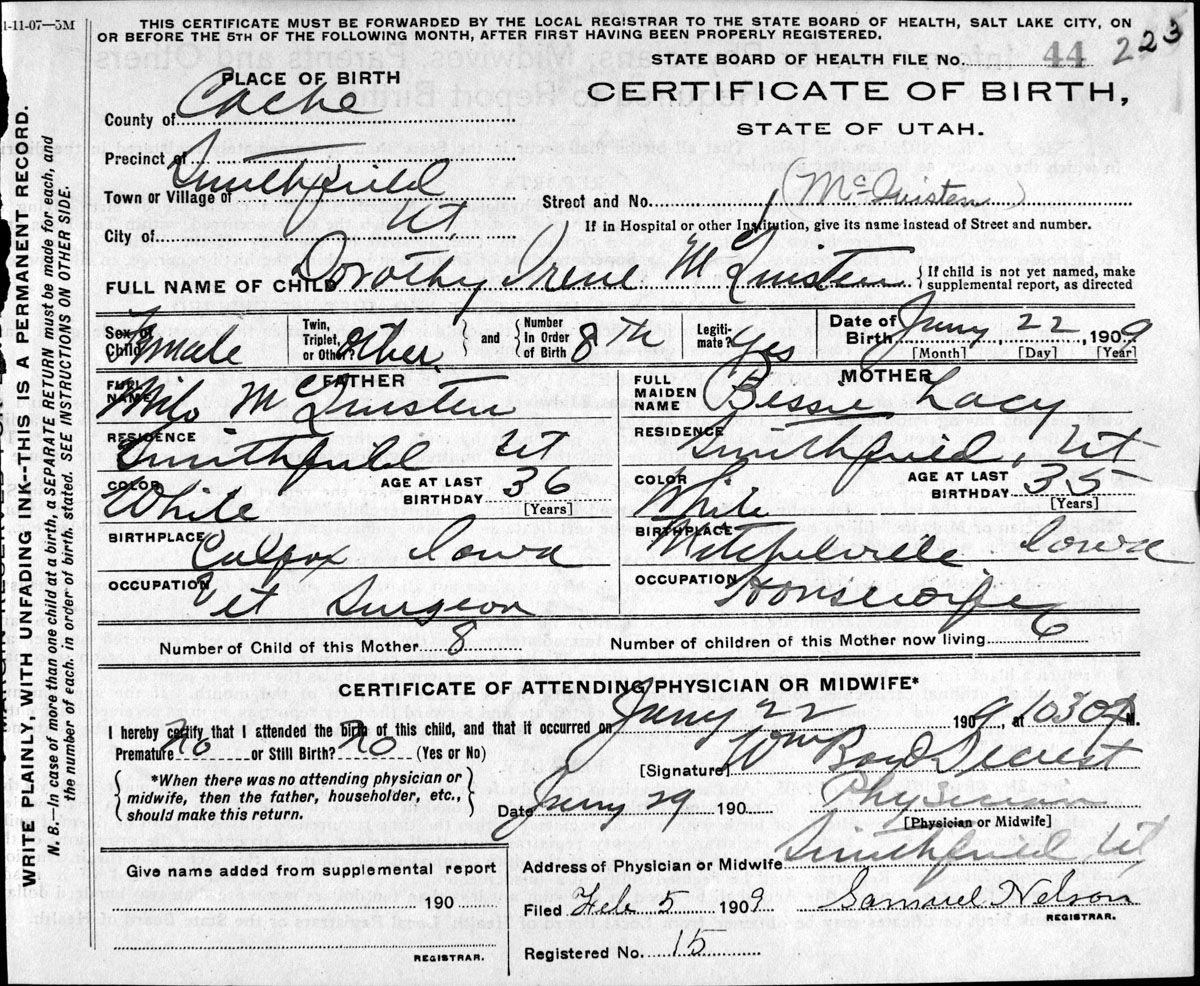 1-11-07—5M
THIS CERTIFICATE MUST BE FORWARDED BY THE LOCAL REGISTRAR TO THE STATE BOARD OF HEALTH, SALT LAKE CITY, ON
OR BEFORE THE 5TH OF THE FOLLOWING MONTH, AFTER FIRST HAVING BEEN PROPERLY REGISTERED.
STATE BOARD OF HEALTH FILE No. 44 223
PLACE OF BIRTH
CERTIFICATE OF BIRTH,
STATE OF UTAH.
County of Cache
Precinct of
Town or Village of Smithfield
Street and No.
If in Hospital or other Institution, give its name instead of Street and number.
City of Ut
FULL NAME OF CHILD Dorothy Irene
If child is not yet named, make
supplemental report, as directed
Sex of Child Female
Twin, Triplet, or Other? Other
and Number In Order of Birth 8th
Legitimate? Yes
Date of Birth Jany 22, 1909
[Month] [Day] [Year]
FATHER
FULL NAME Milo
MOTHER
FULL MAIDEN NAME Bessie Lacy
RESIDENCE Smithfield Ut
RESIDENCE Smithfield, Ut
COLOR White
AGE AT LAST BIRTHDAY 36
[Years]
COLOR White
AGE AT LAST BIRTHDAY 35
[Years]
BIRTHPLACE Colfax Iowa
BIRTHPLACE Mitchelville Iowa
OCCUPATION Vet Surgeon
OCCUPATION Housewife
Number of Child of this Mother 8
Number of children of this Mother now living 6
CERTIFICATE OF ATTENDING PHYSICIAN OR MIDWIFE*
I hereby certify that I attended the birth of this child, and that it occurred on Jany 22 1909, at 1030 M.
Premature No or Still Birth? No (Yes or No)
[Signature] Wm
*When there was no attending physician or
midwife, then the father, householder, etc.,
should make this return.
Date Jany 29 190
Physician
[Physician or Midwife]
Give name added from supplemental report
190
REGISTRAR.
Address of Physician or Midwife Smithfield, Ut
Filed Feb 5 1909 Samuel Nelson
REGISTRAR.
Registered No. 15
WRITE PLAINLY, WITH UNFADING INK--THIS IS A PERMANENT RECORD.
N. B.—In case of more than one child at a birth, a SEPARATE RETURN must be made for each, and
the number of each, in order of birth, stated. SEE INSTRUCTIONS ON OTHER SIDE.